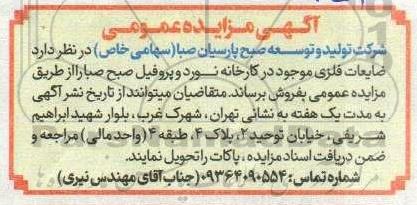 آگهی مزایده عمومی
شرکت تولید و توسعه صبح پارسیان صبا (سهامی خاص) در نظر دارد
ضایعات فلزی موجود در کارخانه نورد و پروفیل صبح صبا را از طریق
مزایده عمومی بفروش برساند. متقاضیان میتوانند از تاریخ نشر آگهی
به مدت یک هفته به نشانی تهران ، شهرک غرب، بلوار شهید ابراهیم
شریفی، خیابان توحید ۲، پلاک ۴، طبقه ۴ (واحد مالی) مراجعه و
ضمن دریافت اسناد مزایده ، پاکات را تحویل نمایند.
شماره تماس : ۰۹۳۶۴۰۹۰۵۵۴ (جناب آقای مهندس نیری)